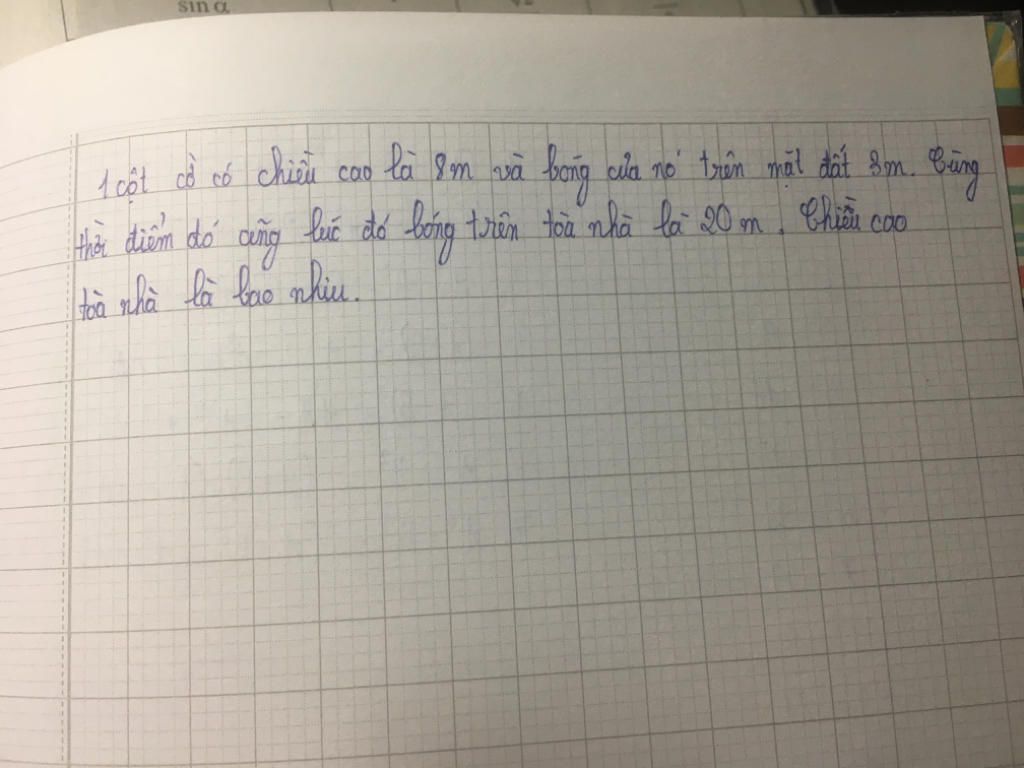 sin α
1 cột cờ có chiều cao là 8m và bóng của nó trên mặt đất 3m. Cùng
thời điểm đó cũng lúc đó bóng trên toà nhà là 20m. Chiều cao
tòa nhà là bao nhiu.